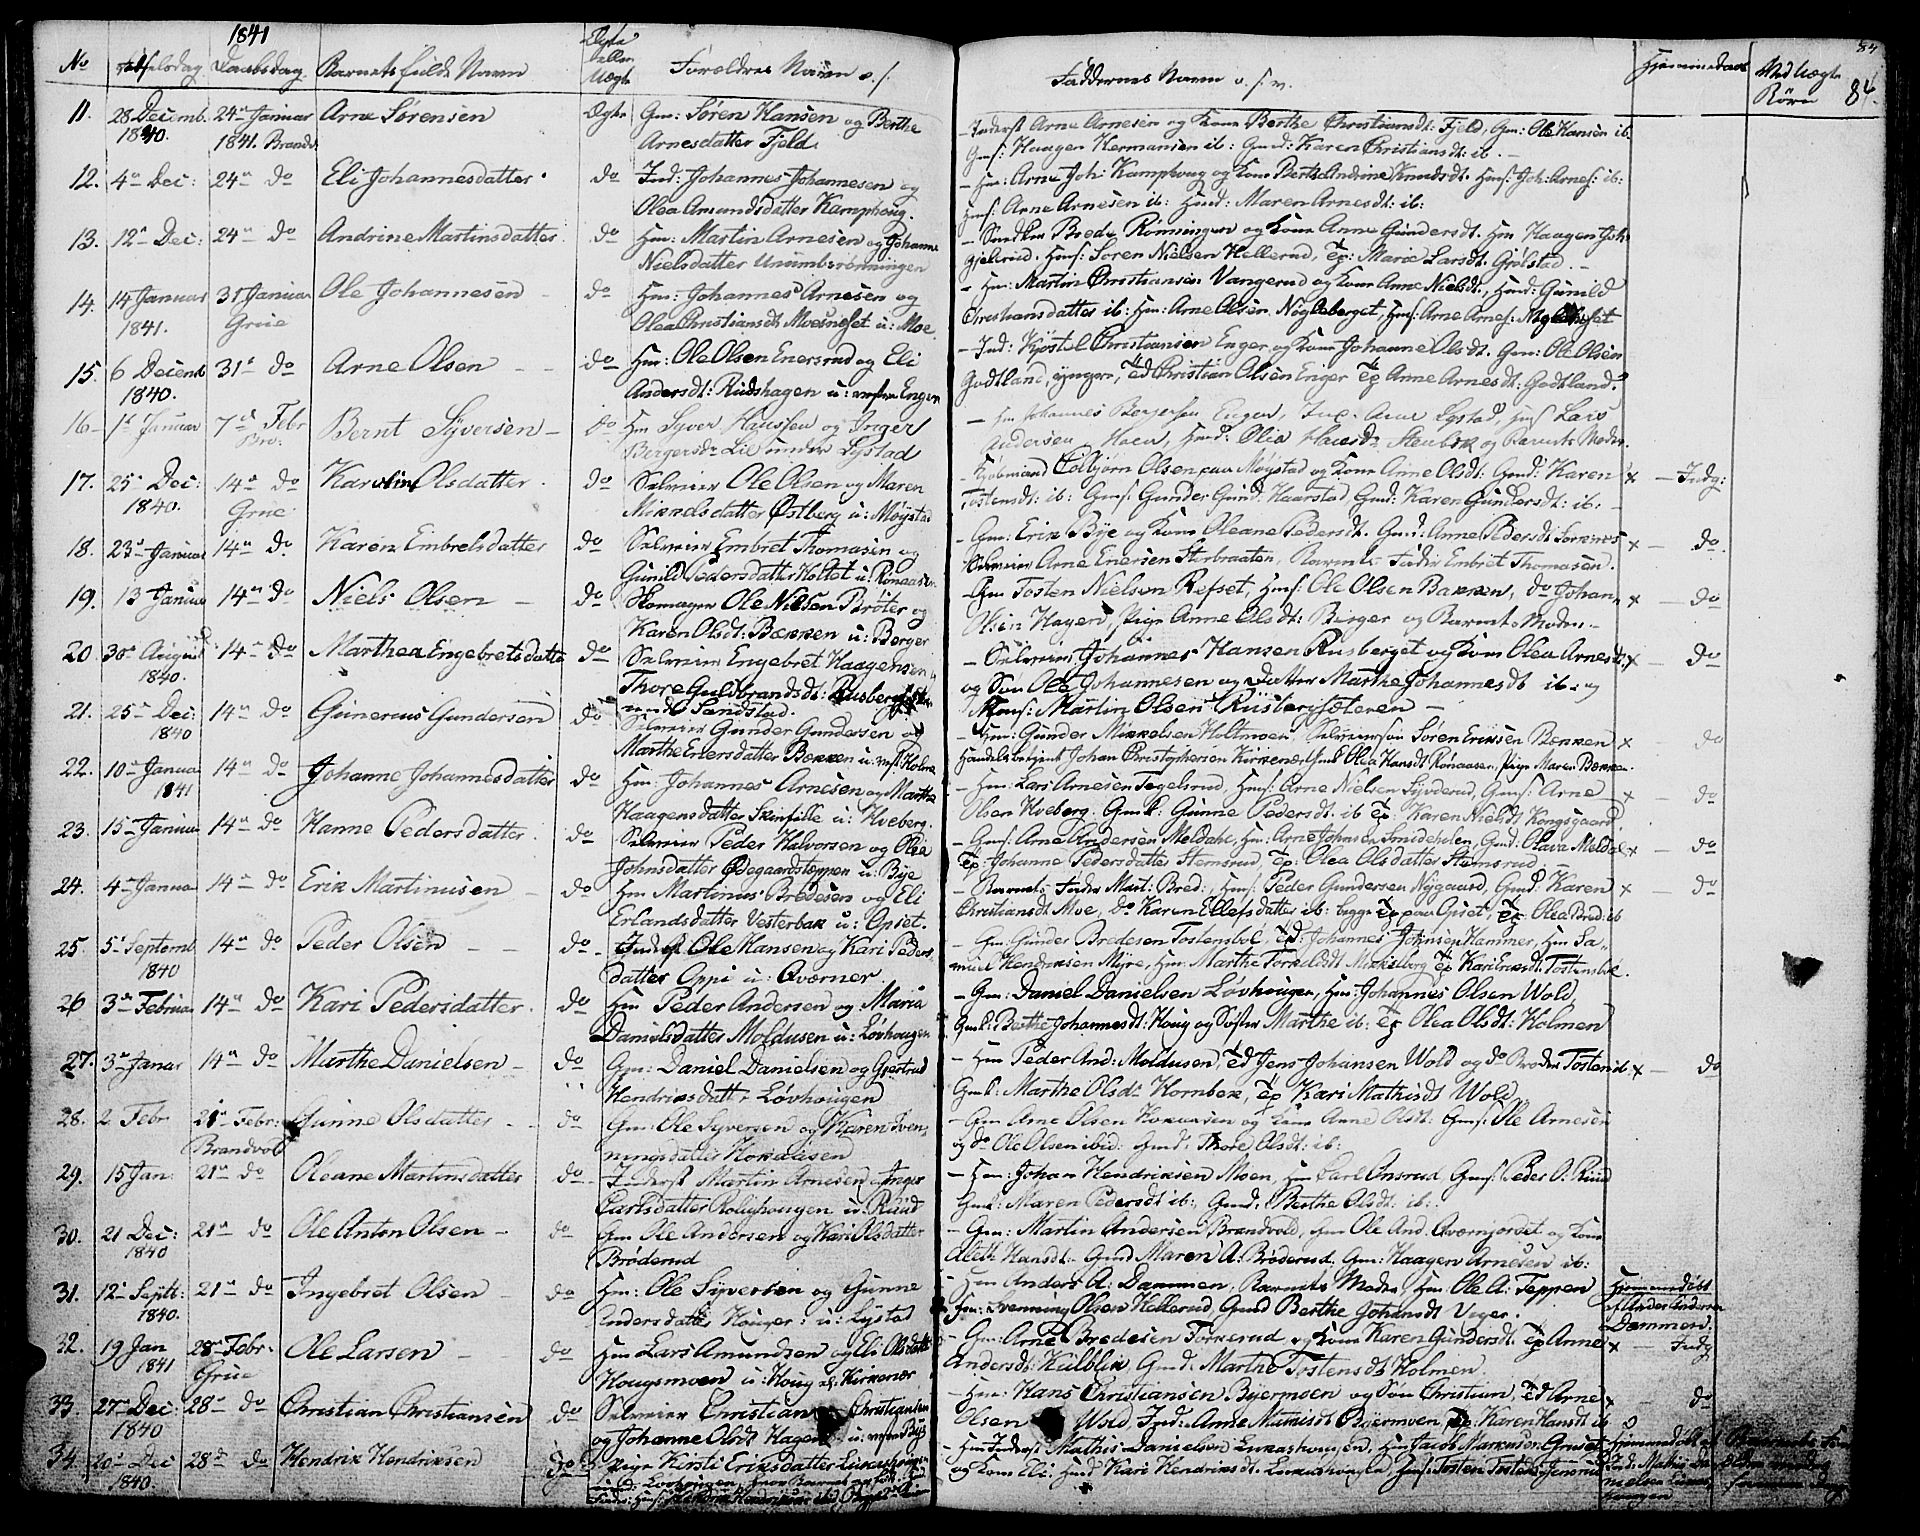 1841
No Fødselsdag Daabsdag. Barnets fulde Navn Ægte eller Uægte Forældres Navn o. s. Faddernes Navn o. s. v. Hjemmedøbt Ved Uægte Børn 84.
11. 28 Decemb. 1840. 24de Januar 1841. Brandv. Arne Sørensen Ægte Gm: Søren Hansen og Berthe
Arnesdatter Fjeld.
- Inderst Arne Arnesen og Kone Berthe Christiansdt: Fjeld, Gm: Ole Hansen ib:
Gmf: Haagen Hermansen ib: Gmd: Karen Christiansdt: ib. -
12. 4de Dec: 24de do Eli Johannesdatter do Ind: Johannes Johannesen og
Olea Amundsdatter Kamphoug.
- Hm: Arne Joh: Kamphoug og Kone Berthe Andrine Knudsdt. Hmf: Joh: Arnes: ib:
Hmf: Arne Arnesen ib: Hmd: Maren Arnesdt: ib:
13. 12te Dec: 24de do Andrine Martinsdatter do Hm: Martin Arnesen og Johanne
Nielsdatter
- Brede Rønningen og Kone Anne Gundersdt. Hm Haagen Joh:
Hmf: Søren Nielsen Hellerud, Tp: Marie Larsdt. Grølstad. -
14. 14 Januar 1841. 31 Januar Grue Ole Johannesen - do Hm: Johannes Arnesen og
Olea Christiansdt Moesneset u: Moe
- Hm: Martin Christiansen Vangerud og Kone Anne Nielsdt., Hmd: Gunild
Christiansdatter ib: Hm: Arne Olsen Nøgleberget, Hmf: Arne Arnes:
15. 6 Decemb 1840. 31te do Arne Olsen - - do Hm: Ole Olsen Enersrud og Eli
Andersdt: Rudshagen u: Enger
- Ind: Kjøstel Christiansen Enger og Kone Johanne Olsdt. Gm: Ole Olsen
Godtland, yngre, Td Christian Olsen Enger Tp Anne Arnesdt: Godtland.
16 - 1te Januar 7de Febr Brv: Bernt Syversen - do Hm Syver Hanssen og Inger
Bergersdr Lie under Lystad
- Hm Johannes Bergersen Enger, Lystad, Hmf Lars
Andersen Moen, Hmd: Olia Hansdr Stenbek og Barnets Moder.
17. 25de Dec: 1840. 14de do Grue. Karoline Olsdatter. do Selveier Ole Olsen og Maren
Mikkelsdatter Østberg u: Møystad
- Kjøbmand Edbjørn Olsen paa Møystad og Kone Anne Olsdt: Gmd: Karen x - Indg:
Tostensdt: ib: Gmf: Gunder Gund: Haarstad Gmd: Karen Gundersdt: ib: -
18. 23de Januar 14de do Karen Embretsdatter do Selveier Embret Thomasen og
Gunild Pedersdatter Holtet u: Rønaasen
- Gm: Erik Bye og Kone Oleane Pedersdt. Gmd: Anne Pedersdt Sorknes x - do.
Selveier Arne Enersen Storbraaten, Barnets Fader Embret Thomasen.
19. 13 Januar 14de do Niels Olsen - do Skomager Ole Nielsen Brøter og
Karen Olsdt: Bækken u: Berger
- Gm Tosten Nielsen Refset, Hmf: Ole Olsen Bakken, do Johan x - do
Olsen Hagen, Pige Anne Olsdt: Berger og Barnets Moder. -
20 30te August 1840. 14de do Marthea Engebretsdatter do Selveier Engebret Haagensen og
Thore Guldbrandsdt:
under Sandstad.
- Selveier Johannes Hansen Rusberget og Kone Olea Arnesdt. x - do
og Søn Ole Johannesen og Datter Marthe Johannesdt ib: og
Hmf: Martin Olsen Rusbergsæteren -
21. 25de Dec: 1840 14de do Gunerius Gundersen do Selveier Gunder Gundersen og
Marthe Enersdatter Bækken u: Holm
- Hm: Gunder Mikkelsen Holtmoen, Selveiersøn Søren Eriksen Bækken x - do
Handelsbetjent Johan Christophersen Kirkenær, Gmd. Olea Hansdt Rønaasen, Pige Maren Bækken.
22. 10de Januar 1841 14de do Johanne Johannesdatter do Hm: Johannes Arnesen og Marthe
Haagensdatter Skinfille u: Hveberg.
- Hm: Lars Arnesen Tegelsrud, Hmf: Arne Nielsen Syverud, Gmf: Arne x - do
Olsen Hveberg. Gmd: Gunne Pedersdt: ib Tp Karen Nielsdt Kongsgaard
23. 15de Januar 14de do Hanne Pedersdatter. do Selveier Peder Halvorsen og Olea
Johnsdatter Ødegaardsteppen u: Bye
- Gmf: Arne Andersen Meldahl, Hm: Arne Johnsen Smideholen, Gmd: Olava Meldal x - do
Tp: Johanne Pedersdatter Stemsrud, Tp: Olea Olsdatter Stemsrud
24. 4de Januar 14de do Erik Martinusen - do Hm Martinus Bredesen og Eli
Erlandsdatter Vesterbak u: Opset.
- Barnets Fader Mart: Bred:, Hmf: Peder Gundersen Nygaard, Gmd: Karen x - do
Christiansdt Moe, do Karen Ellefsdatter ib: begge Tp paa Opset, Tp Olea Bred: ib
25. 5te Septemb. 1840 14de do Peder Olsen - - do - Inderst Ole Hansen og Kari Peders
datter Oppi u: Qværner.
- Gm: Gunder Bredesen Tostensbøl, Td: Johannes Johnsen Hammer, Hm Sa-
muel Hendriksen Myre, Hm: Marthe Torkeldt Mikkelborg Tp Kari Eriksdt: Tostensbøl.
26 3de Februar 14de do Kari Pedersdatter. do Hm Peder Andersen og Maria
Danielsdatter Moldusen u: Løvhougen
- Gm: Daniel Danielsen Løvhougen, Hm: Johannes Olsen Wold,
Gmd: Berthe Johannesdt: Houg og Søster Marthe ib: Tp Olea Olsdt: Holmen
27. 3de Januar 14de do Marthe Danielsen - do Gm: Daniel Danielsen og Gjertrud
Hendriksdatter Løvhougen
- Hm Peder And: Moldusen, Td Jens Johansen Wold og do Broder Tosten ib x - do
Gmd: Marthe Olsdr Hornbek, Tp Kari Mathisdt Wold.
28. 2 Febr 21de Febr: Brandvold Gunne Olsdatter - - do Gm: Ole Syversen og Karen Sven-
ningsdatter Kokaasen
- Gm Arne Olsen Kokaasen og Kone Anne Olsdt: Gmf: Ole Arnesen
og do Ole Olsen ibid: Gmd: Thore Olsdt: ib:
29. 15 Jan: 21de do Oleane Martinsdatter do - Inderst Martin Arnesen og Inger
Larsdatter Rolighougen u: Ruud
- Hm: Johan Hendriksen Moen, Hm Carl Onsrud, Gmf: Peder O. Ruud
Gmd: Maren Pedersdt ib:, Gmd: Berthe Olsdt: ib:
30. 21 Dec: 1840 21de do Ole Anton Olsen - do Gm Ole Andersen og Kari Olsdatter
Brøderud
- Gm: Martin Andersen Brandvold, Gm Ole And. Qværnjordet og Kone
Aleth Hansdt: Gmd Maren A: Brøderud. Gm: Haagen Arnesen ib:
31. 12te Septbr: 1840. 21de do Ingebret Olsen - do Hm: Ole Syversen og Gunne
Andersdatter Houger: u: Lystad
- Hm Anders A: Dammen, Barnets Moder, Hm: Ole A: Teppen
Hm: Svenning Olsen Hellerud, Gmd Berthe Johansdt Unger. -
Hjemmedøbt af Anders Andersen Dammen.
32. 19 Jan 1841 28de Febr. Grue Ole Larsen - do Hm Lars Amundsen og Eli Olsdatter
Hougsmoen u: Houg Kirkenær
- Gm: Arne Bredesen Torkerud og Kone Karen Gundersdt. Tp Anne x - Indg
Andersdt: Kulblik, Gmd: Marthe Tostensdt Holmen
33 27de Dec: 1840 28de do Christian Christiansen do Selveier Christian Christiansen
og Johanne Olsdt Hagen u: Bye
- Hm: Hans Christiansen Byermoen og Søn Christian, Td Arne x - do
Olsen Wold, Ind: Anne Byermoen, Tp: Karen Hansdt ib
34. 20de Dec 1840. 28de do Hendrik Hendriksen do Pige Kersti Eriksdatter
- Hm Inderst Mathis Danielsen Lukashougen, Hm: Jacob Markusen Grueset
og Kone Eli. Hmd Kari Hendriksdt. Lukashougen Hmf: Tosten Tostens:
Hjemmedøbt af Ind: Mathis Danielsen Lukashougen